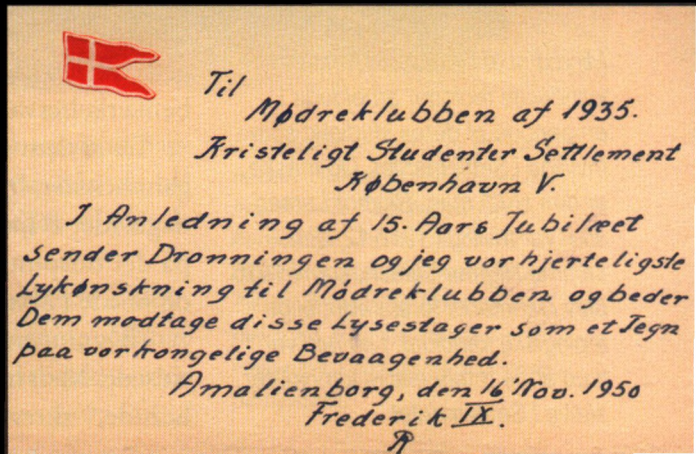 Til
Mødreklubben af 1935.
Kristeligt Studenter Settlement
København V.
I Anledning af 15. Aars Jubilæet
sender Dronningen og jeg vor hjerteligste
Lykønskning til Mødreklubben og beder
Dem modtage disse Lysestager som et Tegn
paa vor kongelige Bevaagenhed.
Amalienborg, den 16' Nov. 1950
Frederik IX.
R